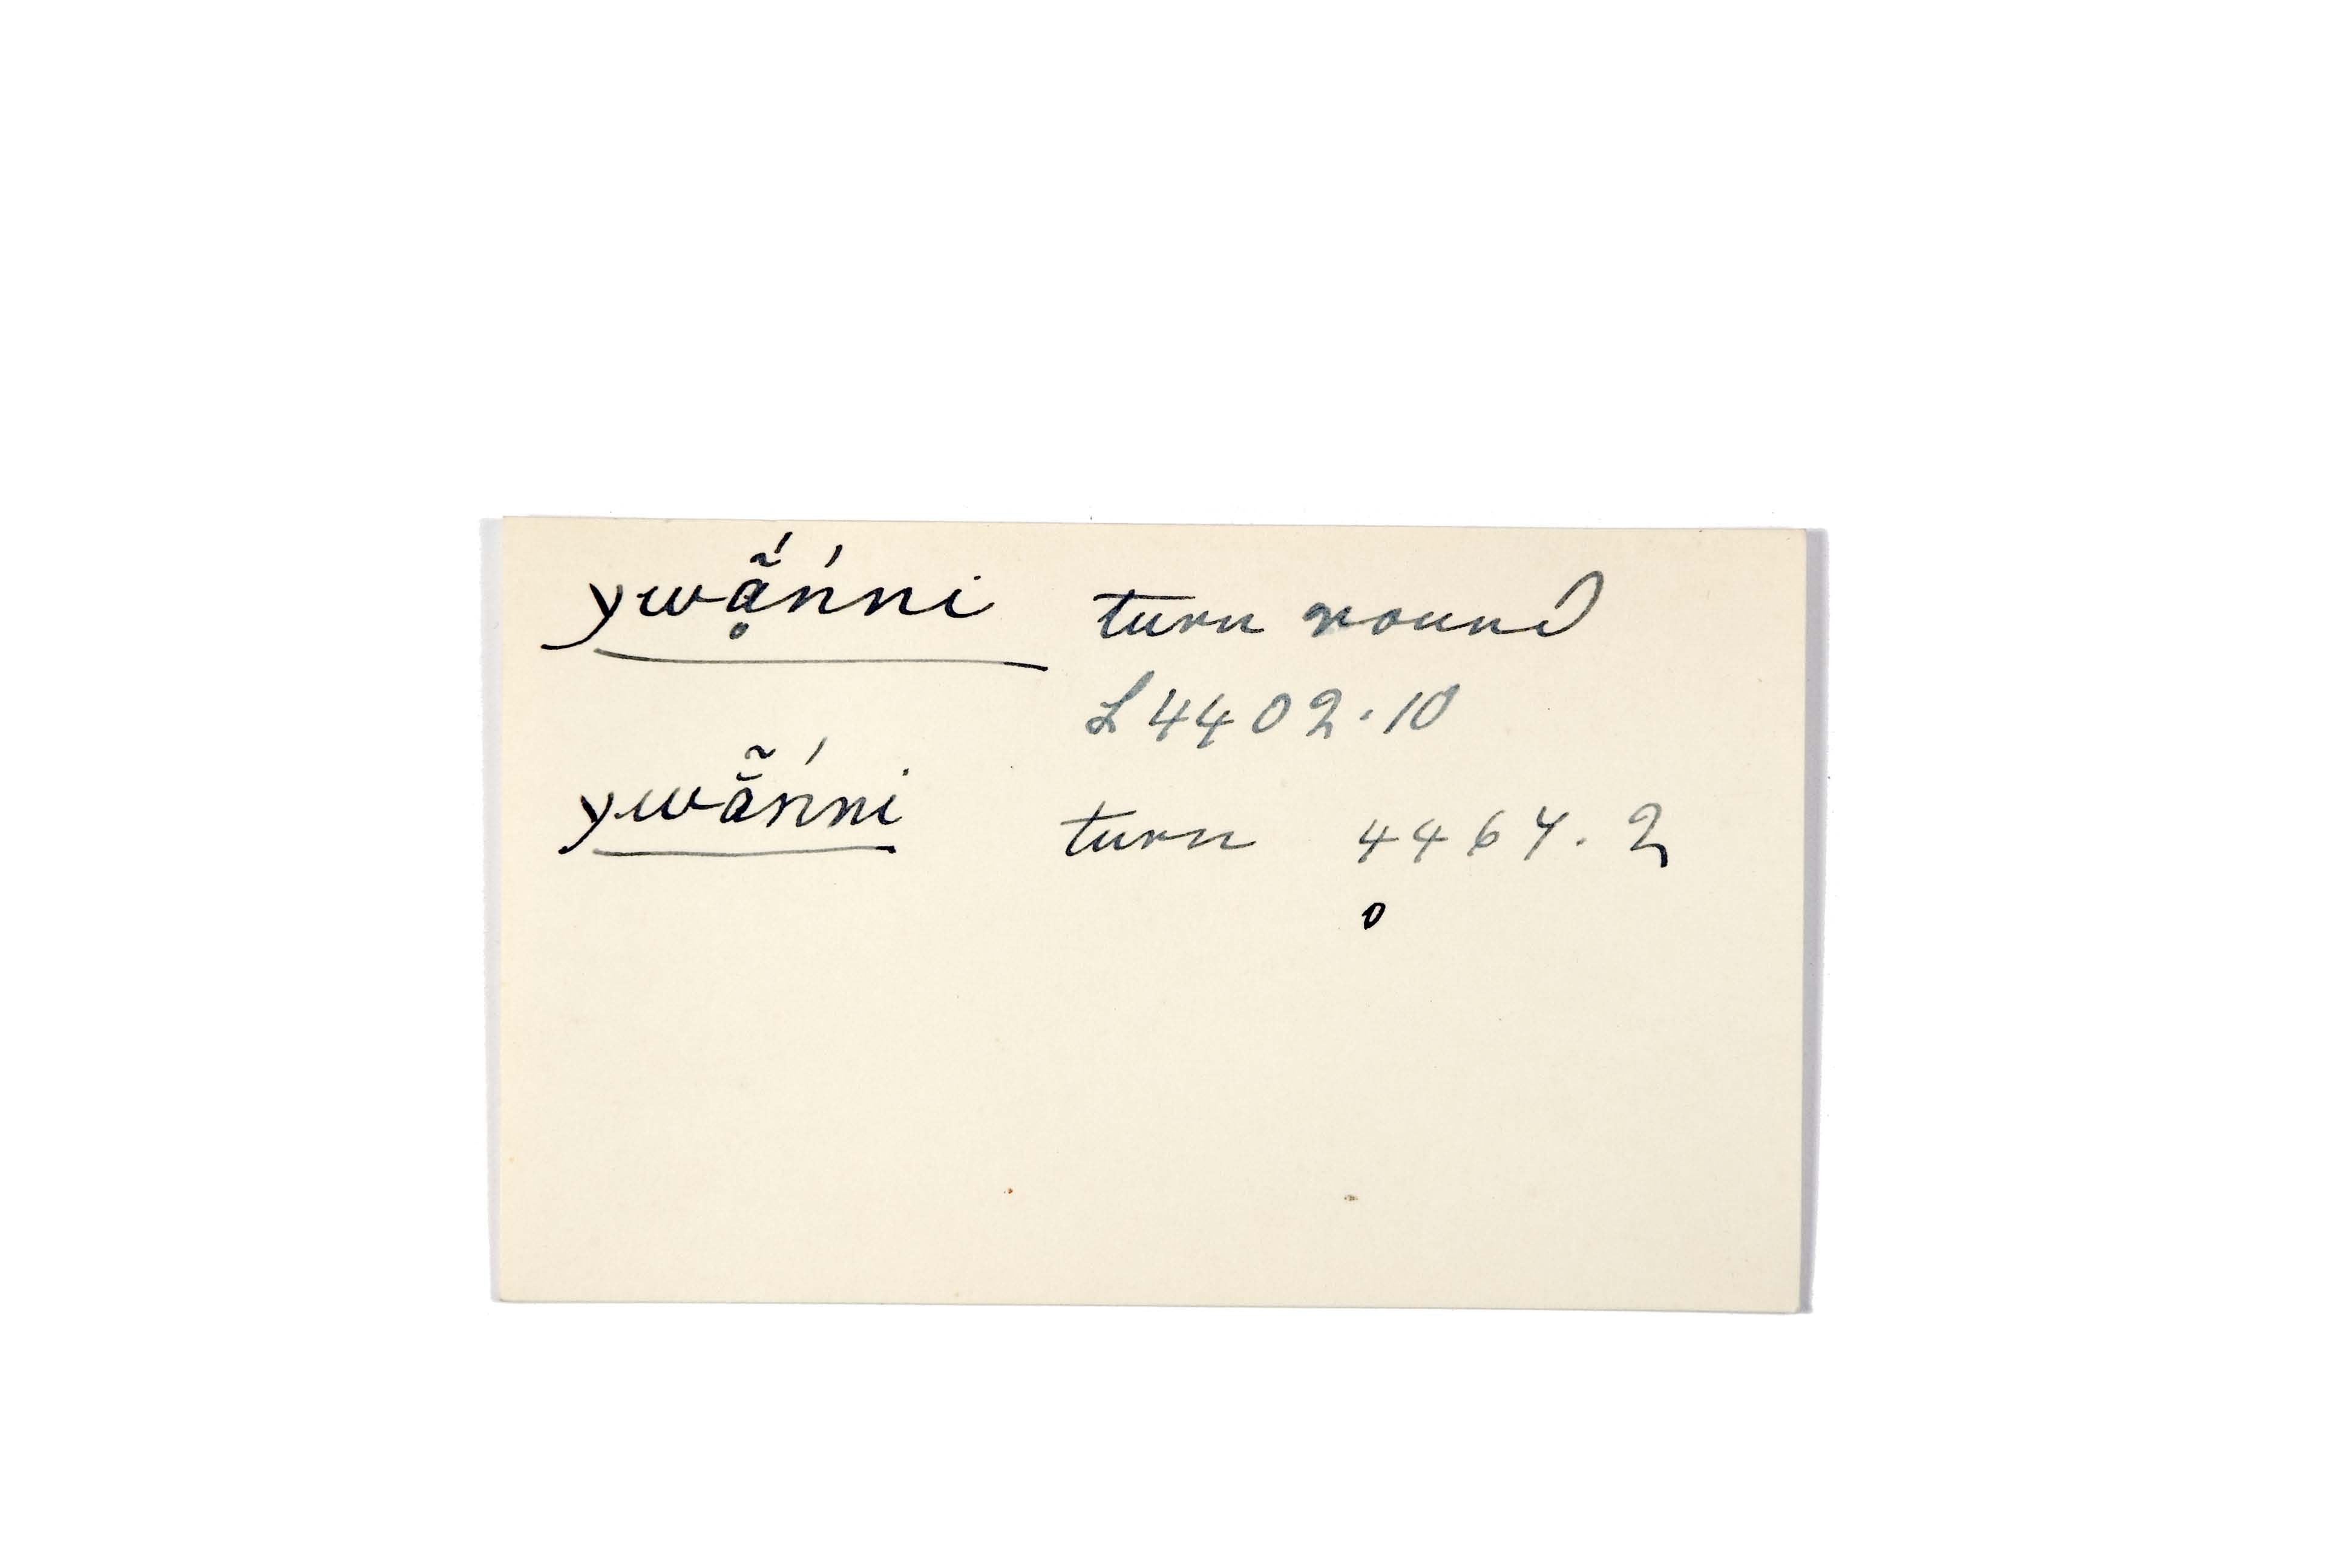 ywą̊̃́n'ni turn round
L4402.10
ywā̃n'ni turn 4464.2
o